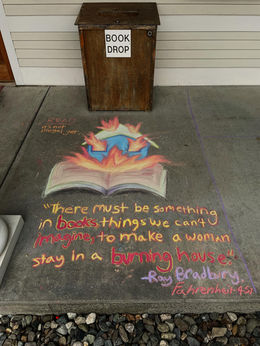 BOOK
DROP
READ
it's not
illegal, yet.
"There must be something
in books, things we can't
imagine, to make a woman
stay in a burning house."
-Ray Bradbury,
Fahrenheit 451